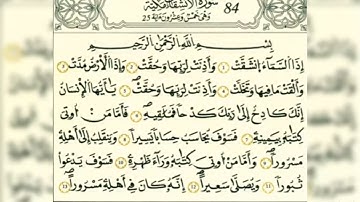 سُورَةُ الانْشِقَاقِ مَكِّيَّةٌ 84
وَهِيَ خَمْسٌ وَعِشْرُونَ ءَايَةً 25
بِسْمِ اللَّهِ الرَّحْمَٰنِ الرَّحِيمِ
إِذَا السَّمَآءُ انشَقَّتْ ١ وَأَذِنَتْ لِرَبِّهَا وَحُقَّتْ ٢ وَإِذَا الْأَرْضُ مُدَّتْ ٣
وَأَلْقَتْ مَا فِيهَا وَتَخَلَّتْ ٤ وَأَذِنَتْ لِرَبِّهَا وَحُقَّتْ ٥ يَٰٓأَيُّهَا الْإِنسَٰنُ
إِنَّكَ كَادِحٌ إِلَىٰ رَبِّكَ كَدْحًا فَمُلَٰقِيهِ ٦ فَأَمَّا مَنْ أُوتِىَ
كِتَٰبَهُۥ بِيَمِينِهِۦ ٧ فَسَوْفَ يُحَاسَبُ حِسَابًا يَسِيرًا ٨ وَيَنقَلِبُ إِلَىٰٓ أَهْلِهِۦ
مَسْرُورًا ٩ وَأَمَّا مَنْ أُوتِىَ كِتَٰبَهُۥ وَرَآءَ ظَهْرِهِۦ ١٠ فَسَوْفَ يَدْعُوا۟
ثُبُورًا ١١ وَيَصْلَىٰ سَعِيرًا ١٢ إِنَّهُۥ كَانَ فِىٓ أَهْلِهِۦ مَسْرُورًا ١٣